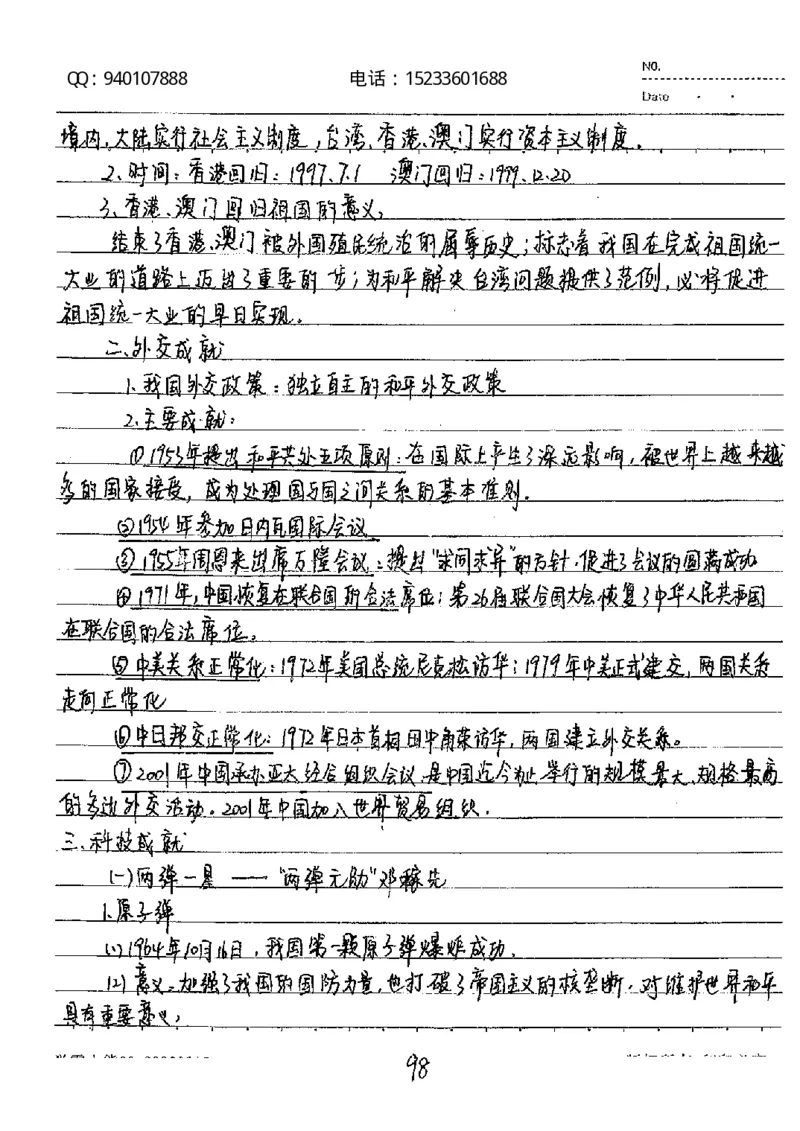 QQ：940107888 电话：15233601688 No.
Date
境内，大陆实行社会主义制度，台湾、香港、澳门实行资本主义制度。
2、时间：香港回归：1997.7.1 澳门回归：1999.12.20
3、香港、澳门回归祖国的意义：
结束了香港、澳门被外国殖民统治的屈辱历史；标志着我国在完成祖国统一
大业的道路上迈出了重要的一步；为和平解决台湾问题提供了范例，必将促进
祖国统一大业的早日实现。
二、外交成就
1、我国外交政策：独立自主的和平外交政策
2、主要成就：
①1953年提出和平共处五项原则：在国际上产生了深远影响，被世界上越来越
多的国家接受，成为处理国与国之间关系的基本准则。
②1954年参加日内瓦国际会议
③1955年周恩来出席万隆会议：提出“求同求异”的方针，促进了会议的圆满成功
④1971年，中国恢复在联合国的合法席位：第26届联合国大会恢复了中华人民共和国
在联合国的合法席位。
⑤中美关系正常化：1972年美国总统尼克松访华；1979年中美正式建交，两国关系
走向正常化
⑥中日邦交正常化：1972年日本首相田中角荣访华，两国建立外交关系。
⑦2001年中国承办亚太经合组织会议，是中国迄今为止举行的规模最大、规格最高
的多边外交活动。2001年中国加入世界贸易组织．
三、科技成就
(一)两弹一星 —— “两弹元勋”邓稼先
1、原子弹
(1)1964年10月16日，我国第一颗原子弹爆炸成功．
(2)意义：加强了我国的国防力量，也打破了帝国主义的核垄断，对维护世界和平
具有重要意义；
98